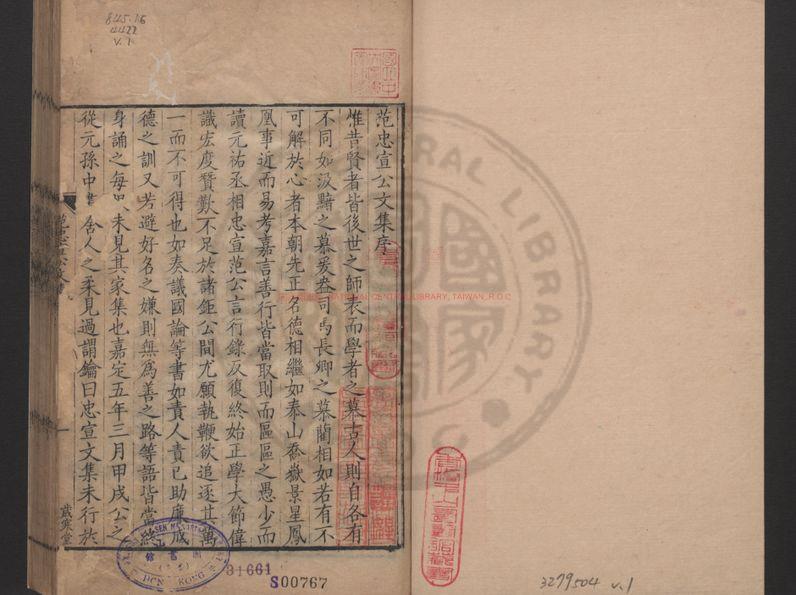 范忠宣公文集序
惟昔賢者皆後世之師表而學者之慕古人則自各有
不同如汲黯之慕爰盎司馬長卿之慕藺相如若有不
可解於心者本朝先正名德相繼如泰山喬嶽景星鳳
凰事近而易考嘉言善行皆當取則而區區之愚少而
讀元祐丞相忠宣范公言行錄反復終始正學大節偉
識宏度贊歎不足於諸鉅公間尤願執鞭欲追逐其萬
一而不可得也如奏議國論等書如責人責己助廉成
德之訓又若避好名之嫌則無為善之路等語皆當終
身誦之每 未見其家集也嘉定五年三月甲戌公之
從元孫中書舍人之柔見過謂鑰曰忠宣文集未行於
歲寒堂
845.16
4422
v.1
NATIONAL CENTRAL LIBRARY, TAIWAN, R.O.C
RAL LIBRARY
HONG KONG
31661
S00767
3279504 v.1